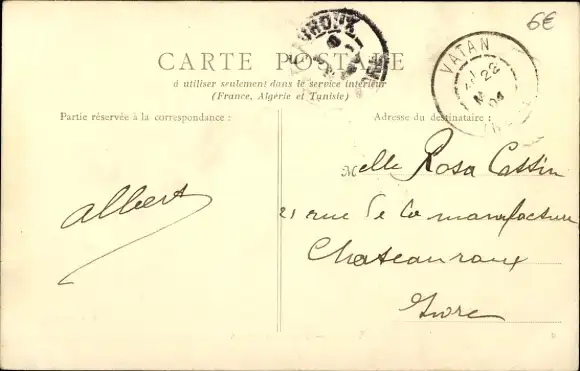 6€
CARTE POSTALE
à utiliser seulement dans le service intérieur
(France, Algérie et Tunisie)
Partie réservée à la correspondance :
Adresse du destinataire :
VATAN
28
04
Albert
Melle Rosa Cassin
21 rue de la manufacture
Chateauroux
Indre